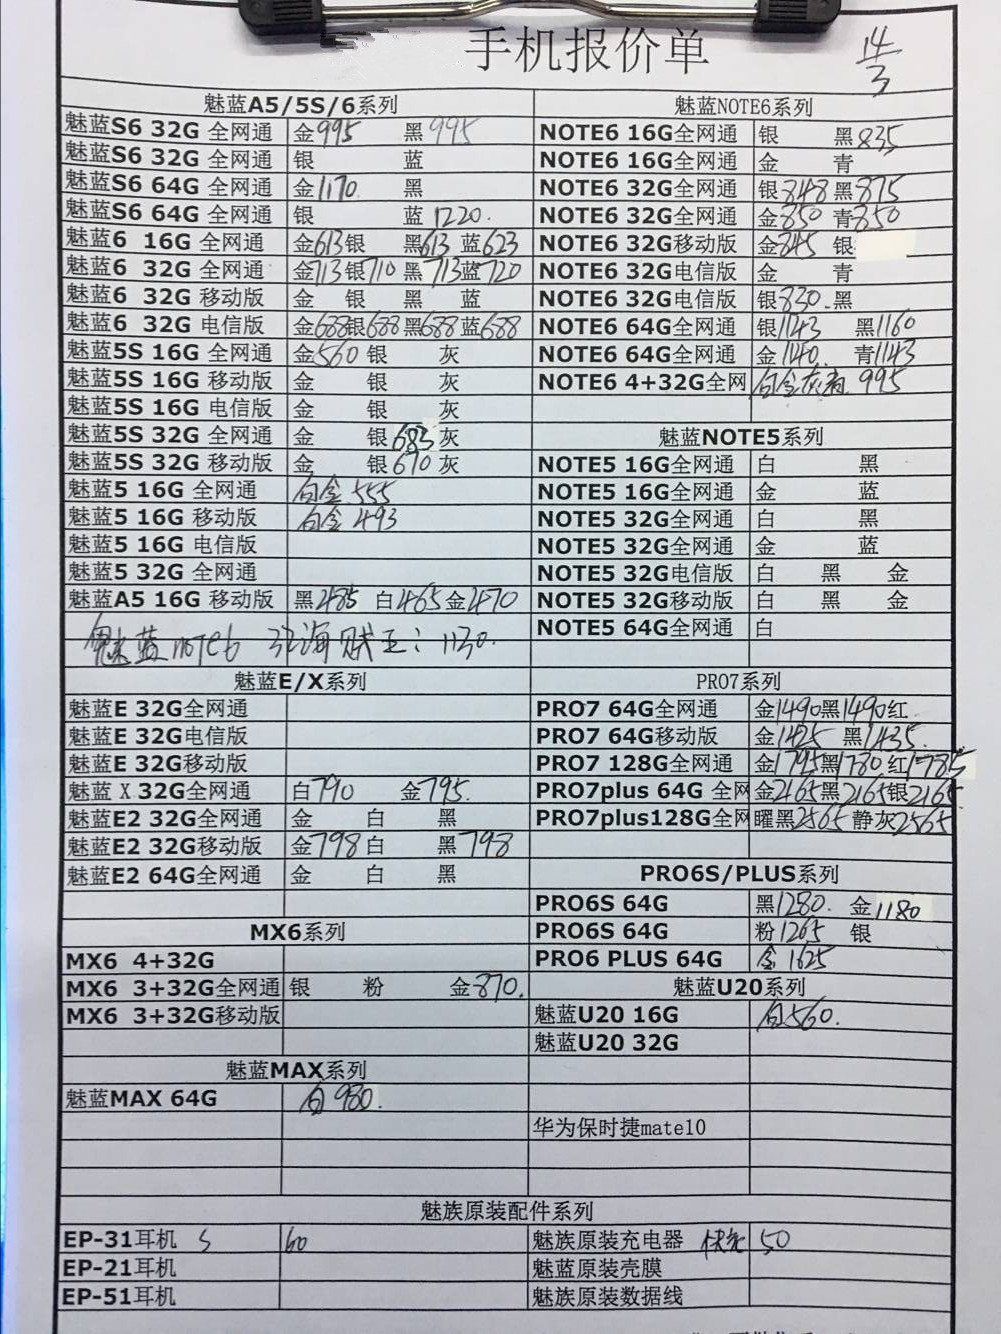 手机报价单
14/3
魅蓝A5/5S/6系列
魅蓝S6 32G 全网通 金995 黑995
魅蓝S6 32G 全网通 银 蓝
魅蓝S6 64G 全网通 金1170 黑
魅蓝S6 64G 全网通 银 蓝1220.
魅蓝6 16G 全网通 金613银 黑613 蓝623
魅蓝6 32G 全网通 金713银710黑713蓝720
魅蓝6 32G 移动版 金 银 黑 蓝
魅蓝6 32G 电信版 金688银688黑688蓝688
魅蓝5S 16G 全网通 金560 银 灰
魅蓝5S 16G 移动版 金 银 灰
魅蓝5S 16G 电信版 金 银 灰
魅蓝5S 32G 全网通 金 银683灰
魅蓝5S 32G 移动版 金 银670灰
魅蓝5 16G 全网通 白金 555
魅蓝5 16G 移动版 白金 493
魅蓝5 16G 电信版
魅蓝5 32G 全网通
魅蓝A5 16G 移动版 黑485 白465金470
魅蓝note6 海贼王：1130.
魅蓝E/X系列
魅蓝E 32G全网通
魅蓝E 32G电信版
魅蓝E 32G移动版
魅蓝X 32G全网通 白790 金795.
魅蓝E2 32G全网通 金 白 黑
魅蓝E2 32G移动版 金798白 黑798
魅蓝E2 64G全网通 金 白 黑
MX6系列
MX6 4+32G
MX6 3+32G全网通 银 粉 金870.
MX6 3+32G移动版
魅蓝MAX系列
魅蓝MAX 64G 白 980.
魅蓝NOTE6系列
NOTE6 16G全网通 银 黑835
NOTE6 16G全网通 金 青
NOTE6 32G全网通 银848黑875
NOTE6 32G全网通 金850 青850
NOTE6 32G移动版 金845 银
NOTE6 32G电信版 金 青
NOTE6 32G电信版 银830.黑
NOTE6 64G全网通 银1143 黑1160
NOTE6 64G全网通 金1140. 青1143
NOTE6 4+32G全网 995
魅蓝NOTE5系列
NOTE5 16G全网通 白 黑
NOTE5 16G全网通 金 蓝
NOTE5 32G全网通 白 黑
NOTE5 32G全网通 金 蓝
NOTE5 32G电信版 白 黑 金
NOTE5 32G移动版 白 黑 金
NOTE5 64G全网通 白
PRO7系列
PRO7 64G全网通 金1490黑1490红
PRO7 64G移动版 金1425 黑1435.
PRO7 128G全网通 金1795黑1780红1785
PRO7plus 64G 全网 金2165黑2165银2165
PRO7plus128G全网 曜黑2565 静灰2565
PRO6S/PLUS系列
PRO6S 64G 黑1280. 金1180
PRO6S 64G 粉1265 银
PRO6 PLUS 64G 金 1625
魅蓝U20系列
魅蓝U20 16G 白560.
魅蓝U20 32G
华为保时捷mate10
魅族原装配件系列
EP-31耳机 S 60
EP-21耳机
EP-51耳机
魅族原装充电器 快充 50
魅蓝原装壳膜
魅族原装数据线